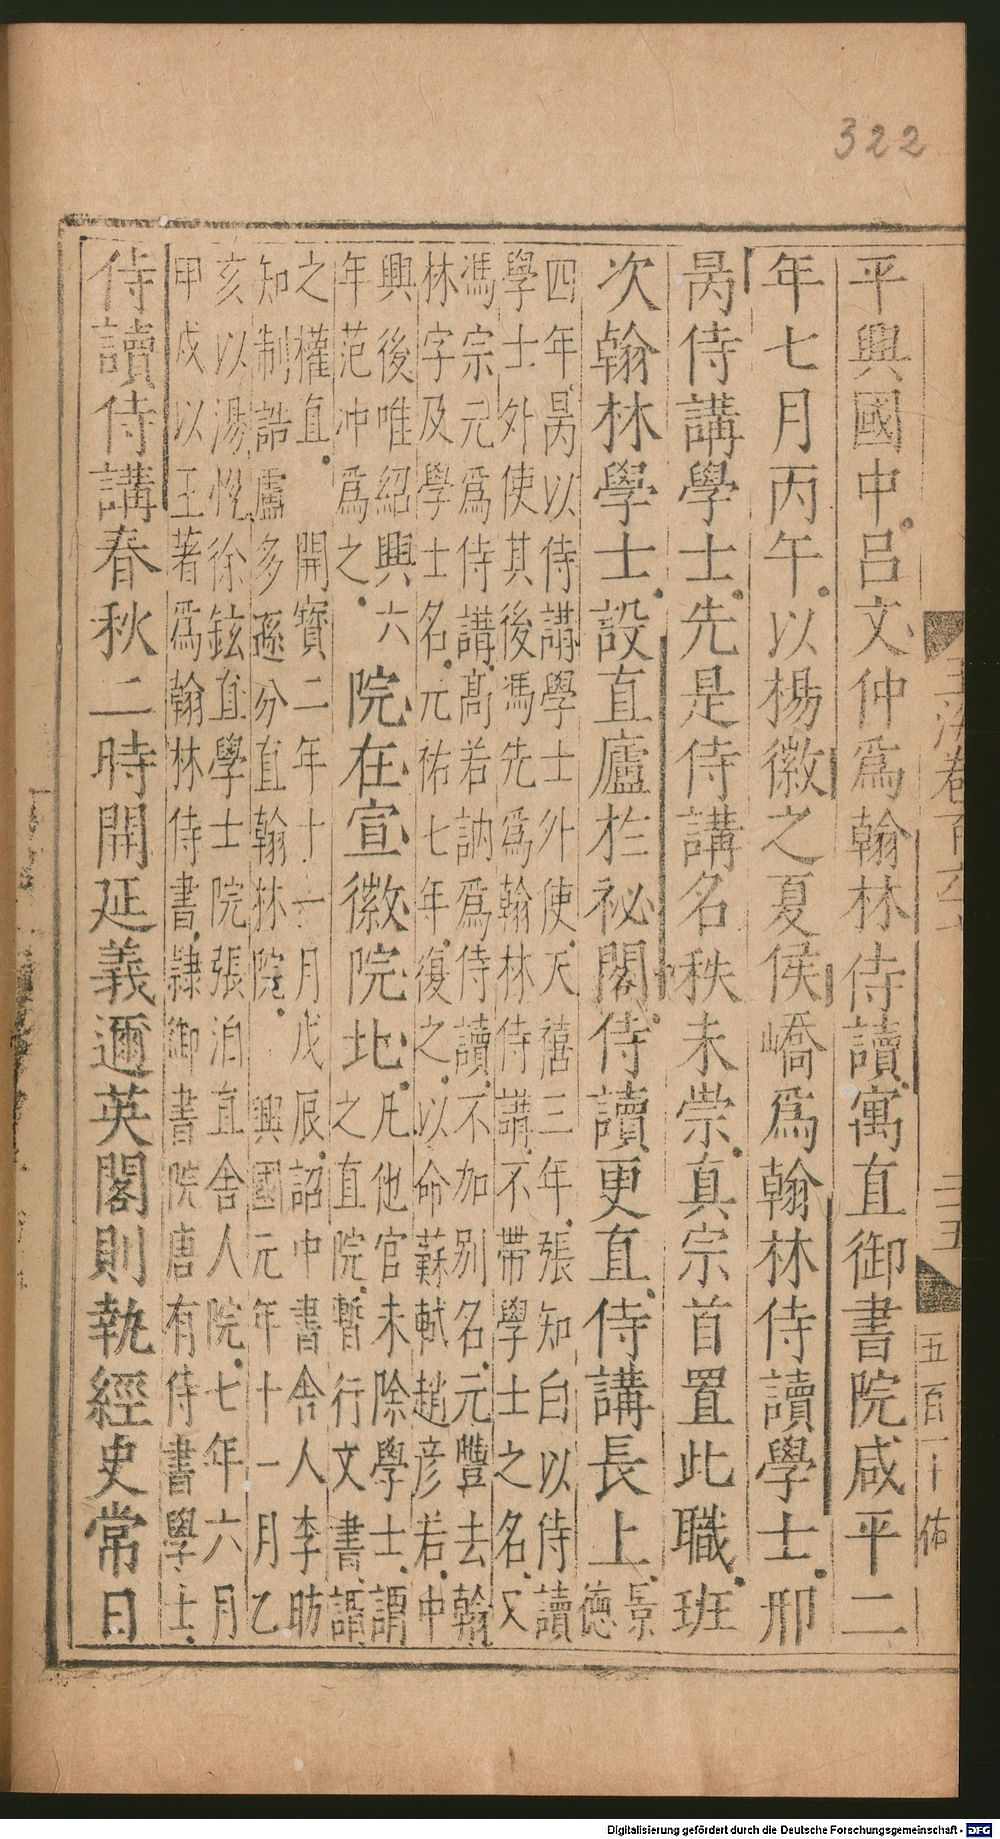 322
平興國中吕文仲爲翰林侍讀寓直御書院咸平二
年七月丙午以楊徽之夏侯嶠爲翰林侍讀學士邢
昺侍講學士先是侍講名秩未崇真宗首置此職班
次翰林學士設直廬於祕閣侍讀更直侍講長上景
德
四年昺以侍講學士外使天禧三年張知白以侍讀
學士外使其後馮先爲翰林侍講不帶學士之名又
馮宗元爲侍講高若訥爲侍讀不加别名元豐去翰
林字及學士名元祐七年復之以命蘇軾趙彦若中
興後唯紹興六
年范冲爲之
院在宣徽院北
凡他官未除學士謂
之直院暫行文書謂
之權直
開寳二年十一月戊辰詔中書舎人李昉
知制誥盧多遜分直翰林院
興國元年十一月乙
亥以湯恱徐鉉直學士院張洎直舎人院七年六月
甲戍以王著爲翰林侍書隷御書院唐有侍書學士
侍讀侍講春秋二時開延義邇英閣則執經史常日
玉海卷百六七
三五
五百二十
Digitalisierung gefördert durch die Deutsche Forschungsgemeinschaft - DFG